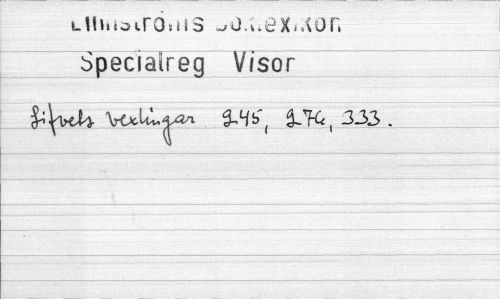 Elmströms Bok.lexikon
Specialreg Visor
Lifvets vexlingar 245, 276, 333.